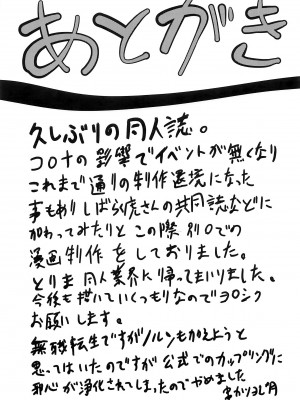 あとがき
久しぶりの同人誌。
コロナの影響でイベントが無くなり
これまで通りの制作環境になった
事もありしばらく虎さんの共同誌などに
加わってみたりとこの際別口での
漫画制作をしておりました。
とりま同人業界に帰ってまいりました。
今後も描いていくつもりなのでヨロシク
お願いします。
無職転生ですがノルンも加えようと
思ってはいたのですが公式でのカップリングに
邪心が浄化されてしまったのでやめました